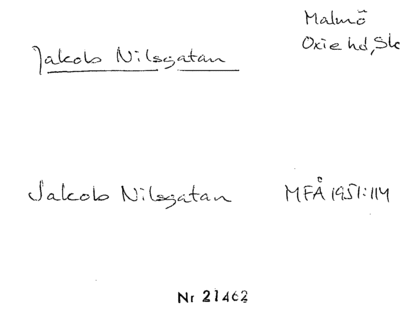 Jakob Nilsgatan
Malmö
Oxie hd, Sk
Jakob Nilsgatan MFÅ 1951:114
Nr 21462